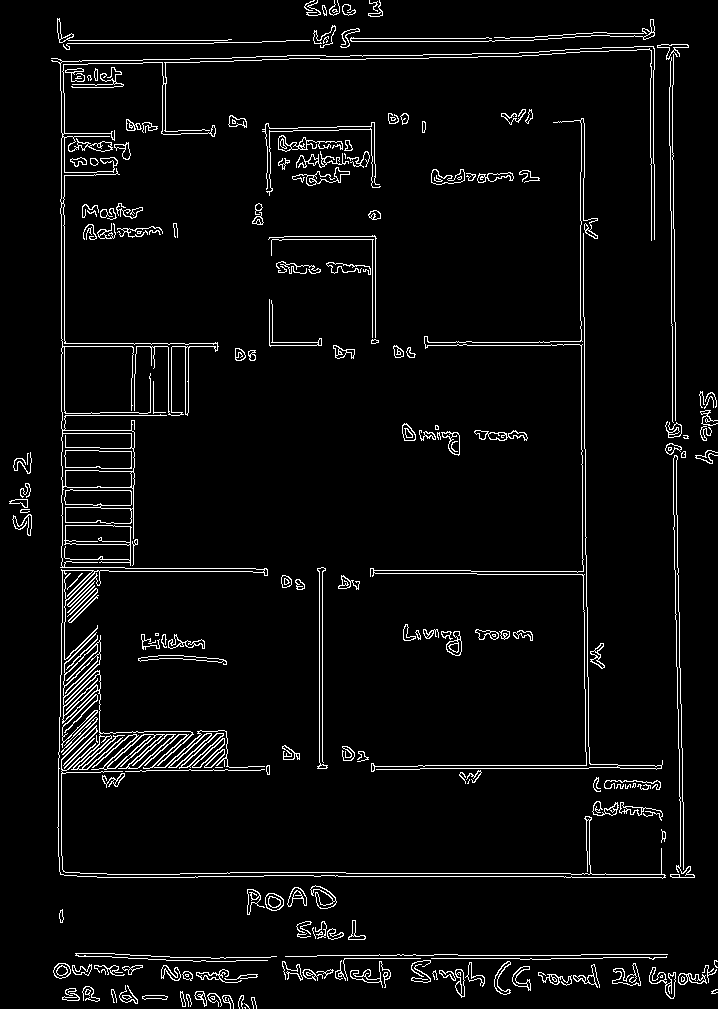 Side 3
45
Toilet
D12 D11 D9 W1
Dressing room
Bedroom 3
+ Attached
toilet
Bedroom 2
Master
Bedroom 1
W
Store room
D5 D7 D6
Side 4
Dining room
Side 2
D3 D4
Kitchen
Living room
W
D1 D2
W W
Common
Bathroom
ROAD
Side 1
Owner Name - Hardeep Singh (Ground 2d layout)
SR Id -